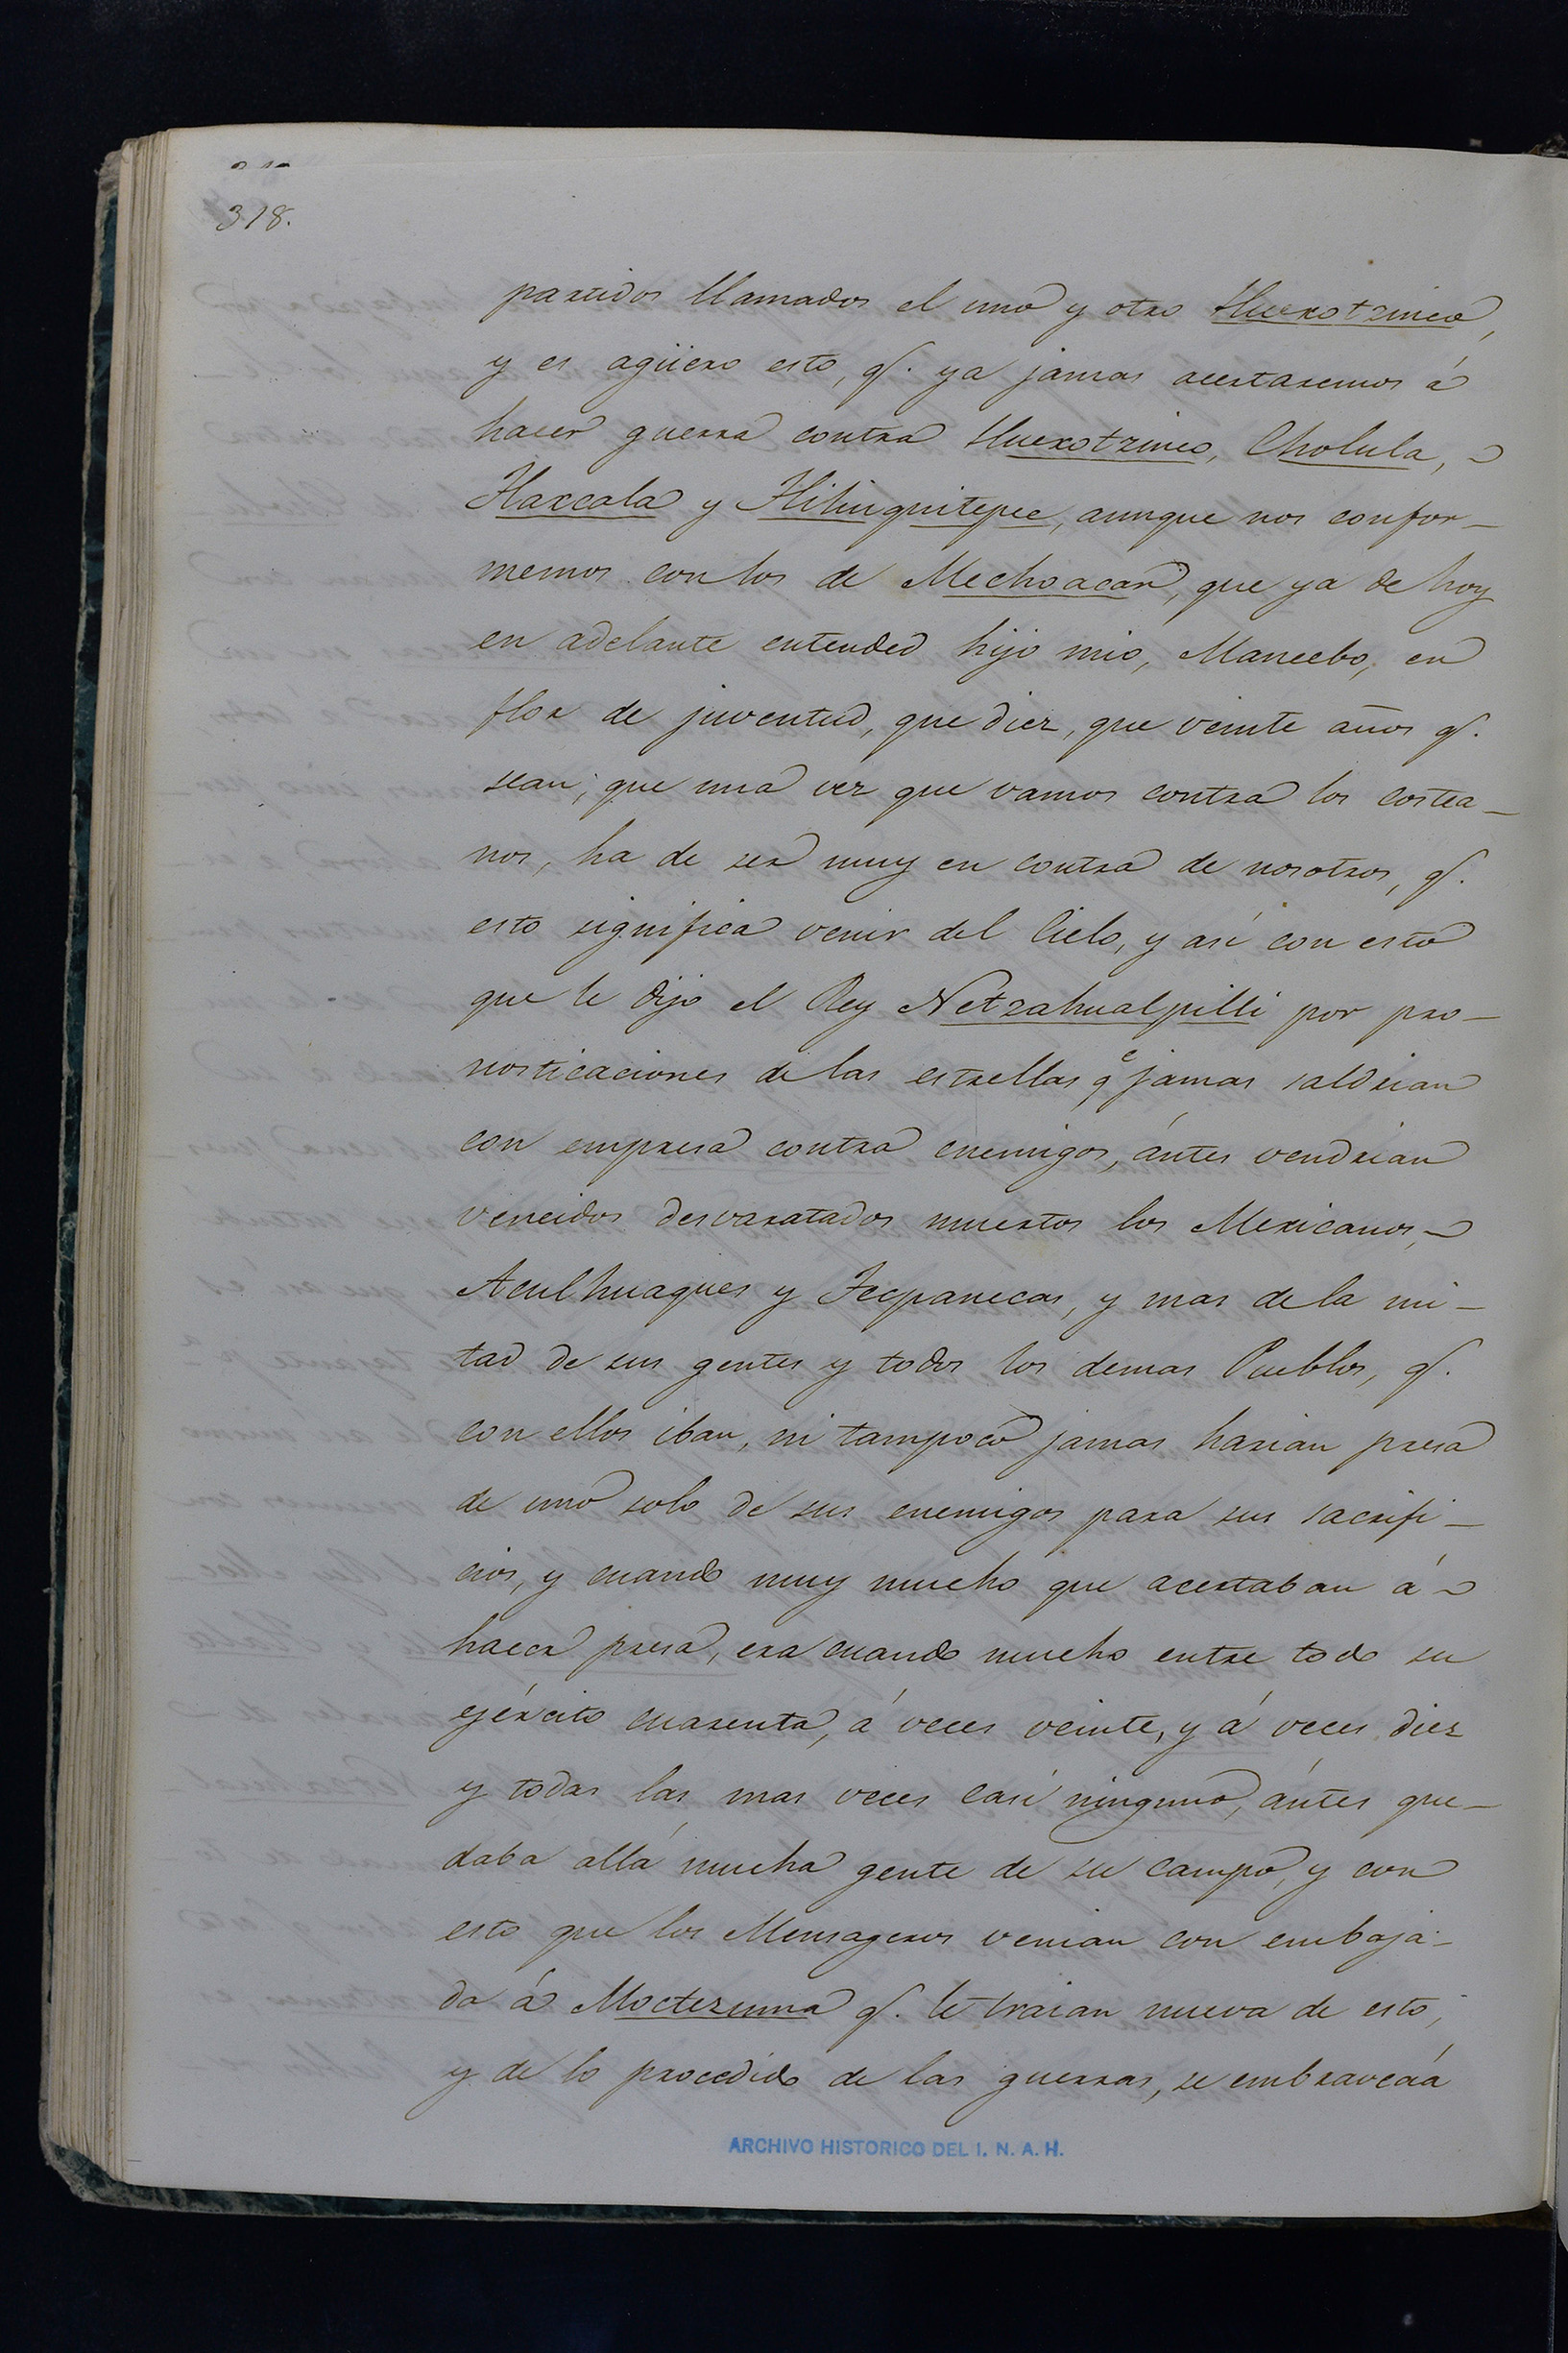 318.
partidos llamados el uno y otro Huexotzinco,
y es agüero esto, q. ya jamas acertaremos á
hacer guerra contra Huexotzinco, Cholula,
Tlaxcala y Tlihuquitepec, aunque nos confor-
memos con los de Mechoacan, que ya de hoy
en adelante entended hijo mio, Mancebo, en
flor de juventud, que diez, que veinte años q.
sean, que una vez que vamos contra los costea-
nos, ha de ser muy en contra de nosotros, q.
esto significa venir del Cielo, y asi con esto
que le dijo el Rey Netzahualpilli por pro-
nosticaciones de las estrellas qe jamas saldrian
con empresa contra enemigos, ántes vendrian
vencidos desvaratados muertos los Mexicanos,
Aculhuaques y Tecpanecas, y mas de la mi-
tad de sus gentes y todos los demas Pueblos, q.
con ellos iban, ni tampoco jamas harian presa
de uno solo de sus enemigos para sus sacrifi-
cios, y cuando muy mucho que acertaban á
hacer presa, era cuando mucho entre todo su
ejército cuarenta, á veces veinte, y á veces diez
y todas las mas veces casi ninguno, ántes que-
daba allá mucha gente de su campo, y con
esto que los Mensageros venian con embaja-
da á Moctezuma q. le traian nueva de esto,
y de lo procedido de las guerras, se embravecia
ARCHIVO HISTORICO DEL I. N. A. H.